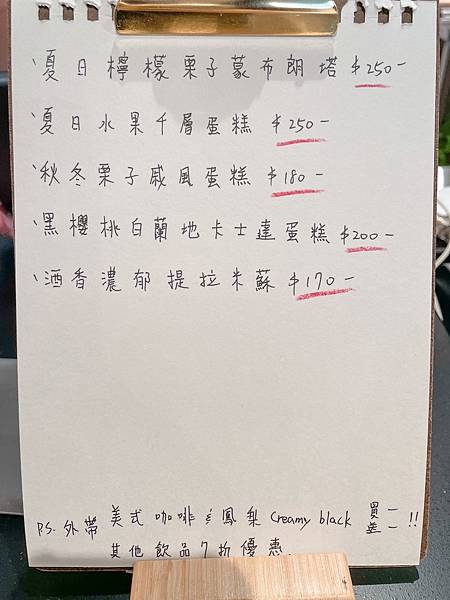 、夏日檸檬栗子蒙布朗塔 $250-
、夏日水果千層蛋糕 $250-
、秋冬栗子戚風蛋糕 $180-
、黑櫻桃白蘭地卡士達蛋糕 $200-
、酒香濃郁提拉米蘇 $170-
P.S. 外帶 美式咖啡&鳳梨 Creamy black 買一送一!!
其他飲品7折優惠